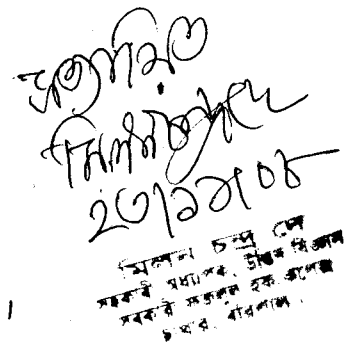 সত্যায়িত
মিলন চন্দ্র দে
২৩/১১/০৮
মিলন চন্দ্র দে
সহকারী অধ্যাপক, উদ্ভিদ বিজ্ঞান
সরকারী ফজলুল হক কলেজ
চাখার, বরিশাল।